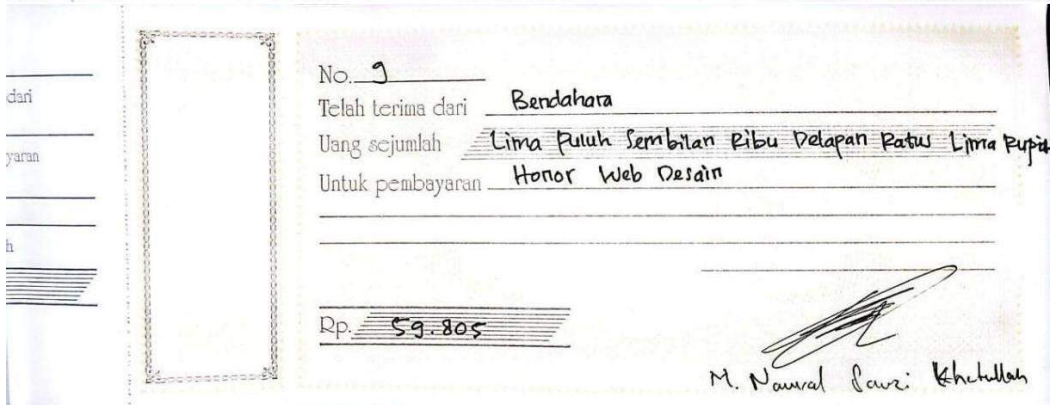 dari
yaran
h
No. 9
Telah terima dari Bendahara
Uang sejumlah Lima Puluh Sembilan Ribu Delapan Ratus Lima Rupiah
Untuk pembayaran Honor Web Desain
Rp. 59.805
M.